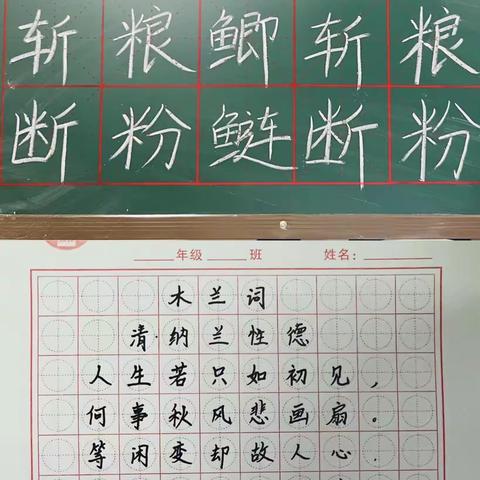 斩粮鲫斩粮
断粉鲢断粉
年级 班 姓名：
木兰词
清·纳兰性德
人生若只如初见，
何事秋风悲画扇。
等闲变却故人心